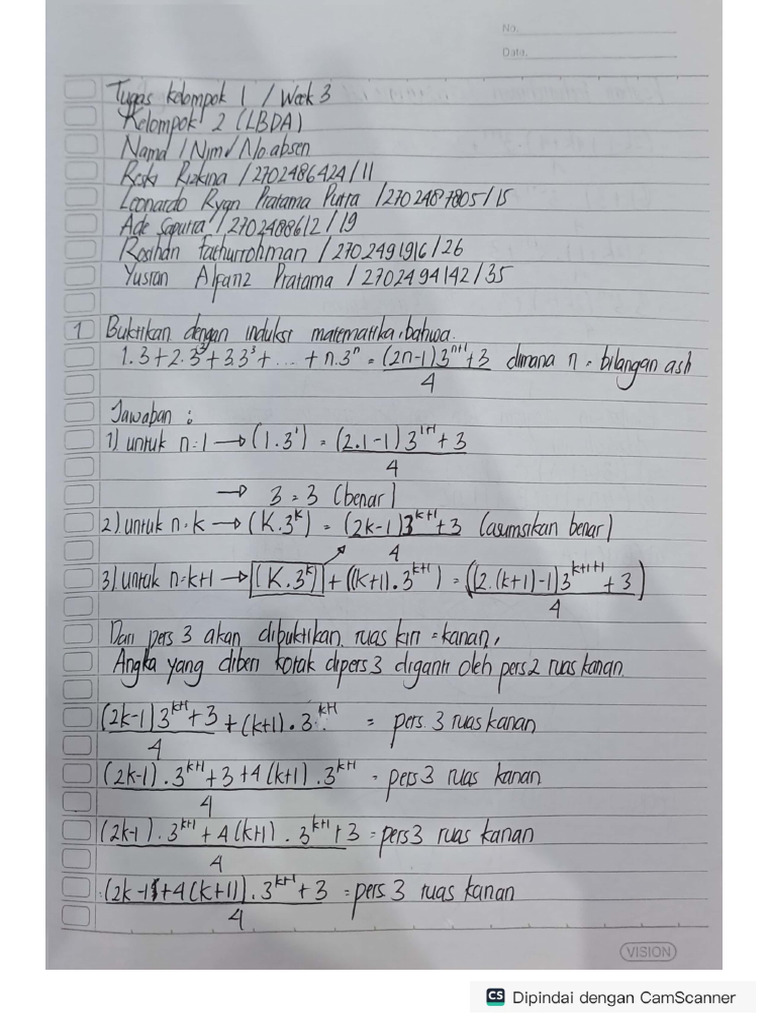 No.
Date.
Tugas kelompok 1 / Week 3
Kelompok 2 (LBDA)
Nama / Nim / No.absen
Reski Rizkina / 2702486424 / 11
Leonardo Ryan Pratama Putra / 2702487805 / 15
Ade Saputra / 2702488612 / 19
Rosihan Fathurrohman / 2702491916 / 26
Yusran Alfanz Pratama / 2702494142 / 35
1 Buktikan dengan induksi matematika, bahwa.
1.3 + 2.3² + 3.3³ + ... + n.3ⁿ = (2n-1)3ⁿ⁺¹ + 3 / 4 dimana n = bilangan asli
Jawaban :
1) untuk n=1 → (1.3¹) = (2.1-1)3¹⁺¹ + 3 / 4
→ 3 = 3 (benar)
2) untuk n=k → (K.3ᵏ) = (2k-1)3ᵏ⁺¹ + 3 / 4 (asumsikan benar)
3) untuk n=k+1 → (K.3ᵏ) + ((k+1).3ᵏ⁺¹) = ((2.(k+1)-1)3ᵏ⁺¹⁺¹ + 3) / 4
Dari pers 3 akan dibuktikan ruas kiri = kanan,
Angka yang diberi kotak dipers 3 diganti oleh pers 2 ruas kanan.
(2k-1)3ᵏ⁺¹ + 3 / 4 + (k+1).3ᵏ⁺¹ = pers. 3 ruas kanan
(2k-1).3ᵏ⁺¹ + 3 + 4(k+1).3ᵏ⁺¹ / 4 = pers 3 ruas kanan
(2k-1).3ᵏ⁺¹ + 4(k+1).3ᵏ⁺¹ + 3 / 4 = pers 3 ruas kanan
(2k-1+ 4(k+1)).3ᵏ⁺¹ + 3 / 4 = pers. 3 ruas kanan
VISION
CS Dipindai dengan CamScanner